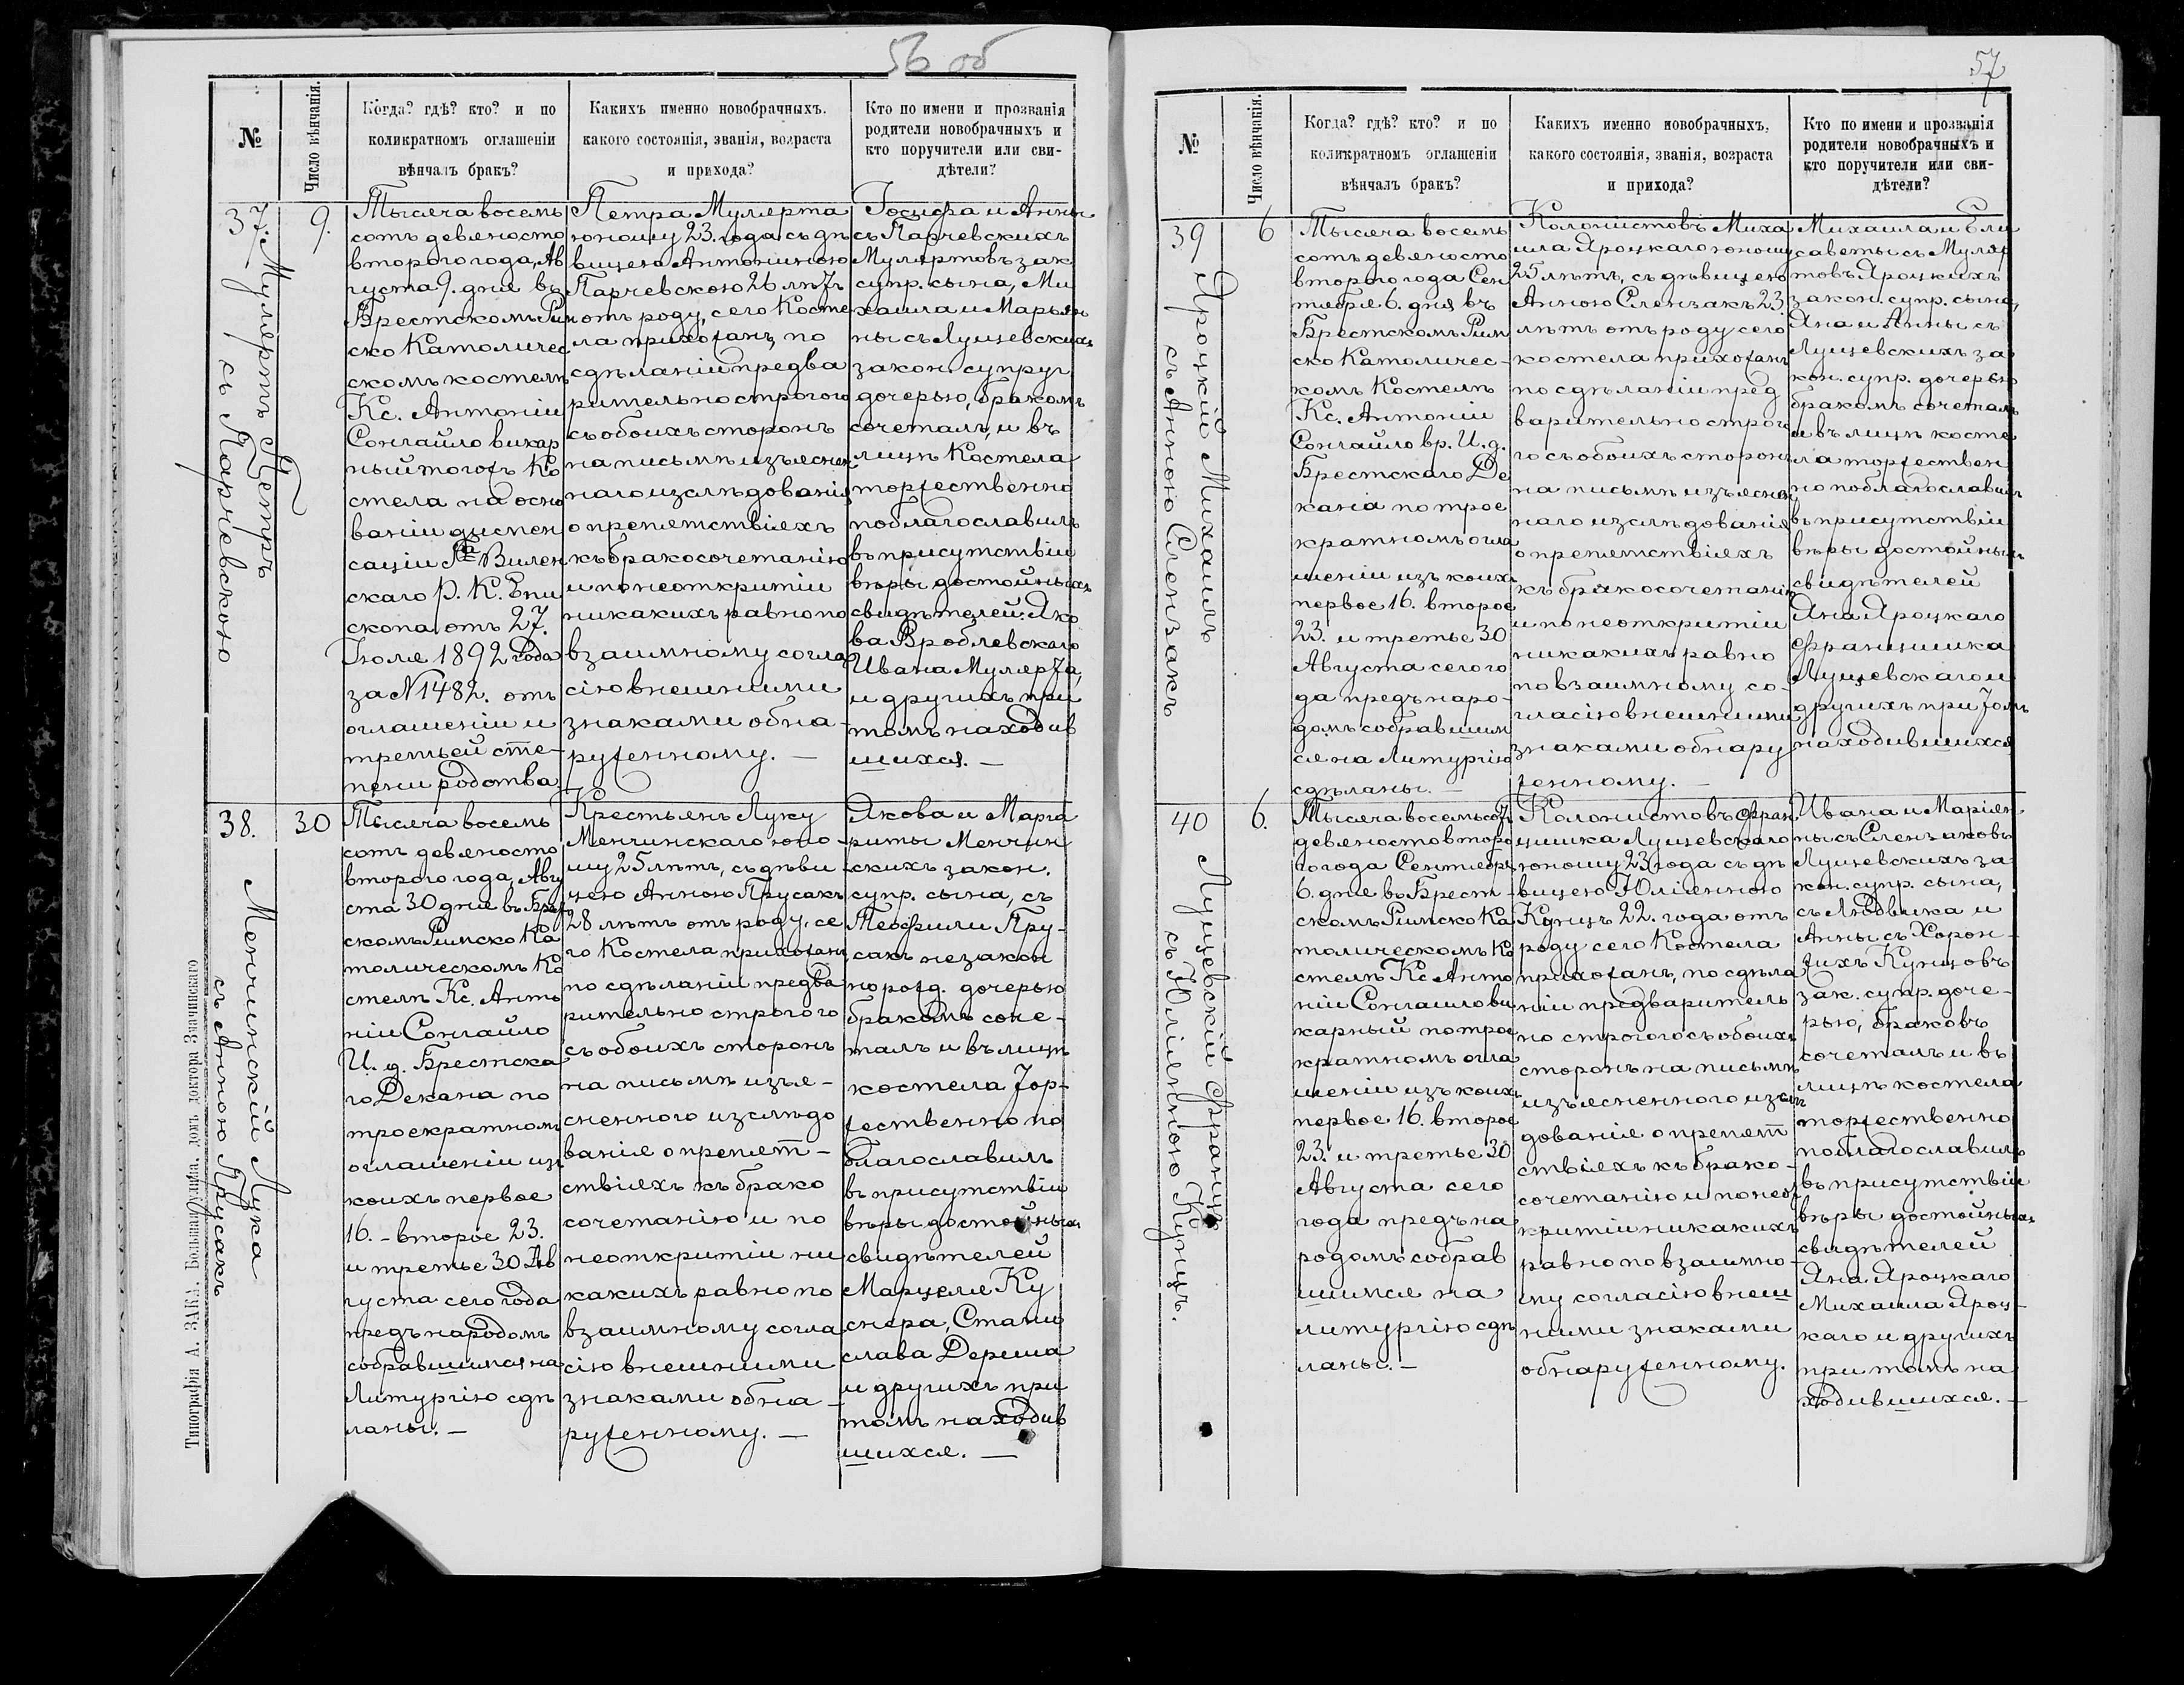 56 об
№
Число вѣнчанія.
Когда? гдѣ? кто? и по
коликратномъ оглашеніи
вѣнчалъ бракъ?
Какихъ именно новобрачныхъ,
какого состоянія, званія, возраста
и прихода?
Кто по имени и прозванія
родители новобрачныхъ и
кто поручители или сви-
дѣтели?
37.
Мулертъ Петръ
съ Парчевскою
9.
Тысяча восемь
сотъ девяносто
второго года, Ав
густа 9. дня въ
Брестскомъ Рим
ско Католичес
скомъ костелѣ
Кс. Антоній
Сонгайло викар
ный тогожъ Ко
стела на осно
ваніи диспен
саціи Виленс
скаго Р. К. Епи
скопа отъ 27.
Іюля 1892 года
за N 1482. отъ
оглашеніи и
третьей сте-
пени родства.
Петра Мулерта
юношу 23. года съ дѣ
вицею Антониною
Парчевскою 26 лѣтъ
отъ роду, сего Косте
ла прихожанъ, по
сдѣланіи предва
рительно строгого
съ обоихъ сторонъ
на письмѣ изъяснен
наго изслѣдованія
о препятствіяхъ
къ бракосочетанію
и по неоткритіи
никакихъ равно по
взаимному согла
сію внешними
знаками обна-
руженному. —
Іосифа и Анны
съ Парчевскихъ
Мулертовъ зак
супр. сына, Ми
хаила и Марьян
ны съ Лущевскихъ
закон. супруг
дочерью, бракомъ
сочеталъ, и въ
лицѣ Костела
торжественно
поблагославилъ
въ присутствіи
вѣры достойныхъ
свидѣтелей: Яко
ва Вроблевскаго
Ивана Мулерта,
и другихъ при
томъ находив
шихся. —
38.
Менчинскій Лука
съ Анною Прусакъ
30
Тысяча восемь
сотъ девяносто
второго года, Авгу
ста 30 дня въ Брест
скомъ Римско Ка
толическомъ Ко
стелѣ Кс. Анто
ній Сонгайло
И. д. Брестска
го Декана по
троекратномъ
оглашеніи изъ
коихъ первое
16. - второе 23.
и третье 30 Ав
густа сего года
предъ народомъ
собравшимся на
Литургію сдѣ
ланы. —
Крестьянъ Луку
Менчинскаго юно-
шу 25 лѣтъ, съ дѣви
цею Анною Прусакъ
28 лѣтъ отъ роду, се
го Костела прихожанъ
по сдѣланіи предва
рительно строгого
съ обоихъ сторонъ
на письмѣ изъя-
сненного изслѣдо
ваніе о препят-
ствіяхъ къ брако
сочетанію и по
неоткритіи ни
какихъ равно по
взаимному согла
сію внешними
знаками обна-
руженному. —
Якова и Марга
риты Менчин
скихъ закон.
супр. сына, съ
Теофили Пру-
сакъ незакон
норожд. дочерью
бракомъ соче-
талъ и въ лицѣ
костела тор-
жественно по
благославилъ
въ присутствіи
вѣры достойныхъ
свидѣтелей
Марцеля Ку
снера, Стани
слава Дереша
и другихъ при
томъ находив
шихся. —
Типографія А. ЗАКА, Большая улица, домъ доктораЗзачинскаго
57
№
Число вѣнчанія.
Когда? гдѣ? кто? и по
коликратномъ оглашеніи
вѣнчалъ бракъ?
Какихъ именно новобрачныхъ,
какого состоянія, званія, возраста
и прихода?
Кто по имени и прозванія
родители новобрачныхъ и
кто поручители или сви-
дѣтели?
39
Яроцкій Михаилъ
съ Анною Слензакъ
6
Тысяча восемь
сотъ девяносто
второго года Сен
тября 6. дня въ
Брестскомъ Рим
ско Католичес-
комъ Костелѣ
Кс. Антоній
Сонгайло вр. И. д.
Брестскаго Де
кана по трое
кратномъ огла
шеніи изъ коихъ
первое 16. второе
23. и третье 30
Августа сего го
да предъ наро-
домъ собравшим
ся на Литургію
сдѣланы. —
Колонистовъ Миха
ила Яроцкаго юношу
25 лѣтъ, съ дѣвицею
Анною Слензакъ 23
лѣтъ отъ роду сего
костела прихожанъ
по сдѣланіи пред
варительно строго
го съ обоихъ сторонъ
на письмѣ изъяснен
наго изслѣдованія
о препятствіяхъ
къ бракосочетанію
и по неоткритіи
никакихъ равно
по взаимному со-
гласію внешними
знаками обнару
женному. —
Михаила и Ели
саветы съ Муляр
товъ Яроцкихъ
закон. супр. сына,
Яна и Анны съ
Лущевскихъ за
кон. супр. дочерью
бракомъ сочеталъ
и въ лицѣ косте
ла торжествен
но поблагославилъ
въ присутствіи
вѣры достойныхъ
свидѣтелей
Яна Яроцкаго
Францишка
Лущевскаго и
другихъ при томъ
находившихся
40
Лущевскій Францъ
съ Юліянною Кунцъ.
6.
Тысяча восемьсотъ
девяносто второ
го года Сентября
6. дня въ Брест-
скомъ Римско Ка
толическомъ Ко
стелѣ Кс Анто
ній Сонгайло ви
карный по трое
кратномъ огла
шеніи изъ коихъ
первое 16. второе
23. и третье 30
Августа сего
года предъ на
родомъ собрав
шимся на
литургію сдѣ
ланы. —
Колонистовъ Фран
цишка Лущевскаго
юношу 23 года съ дѣ
вицею Юліянною
Кунцъ 22. года отъ
роду сего Костела
прихожанъ, по сдѣла
ніи предваритель
но строгого съ обоихъ
сторонъ на письмѣ
изъясненного изслѣ
дованіе о препят
ствіяхъ къ брако-
сочетанію и по неот
критіи никакихъ
равно по взаимно-
му согласію внеш
ними знаками
обнаруженному.
Ивана и Маріян
ны съ Слензаковъ
Лущевскихъ за
кон. супр. сына,
съ Людвика и
Анны съ Хорон-
жихъ Кунцовъ
зак. супр. доче-
рью, браковъ
сочеталъ и въ
лицѣ костела
торжественно
поблагославилъ
въ присутствіи
вѣры достойныхъ
свидѣтелей
Яна Яроцкаго
Михаила Яроц-
каго и другихъ
при томъ на
ходившихся. —